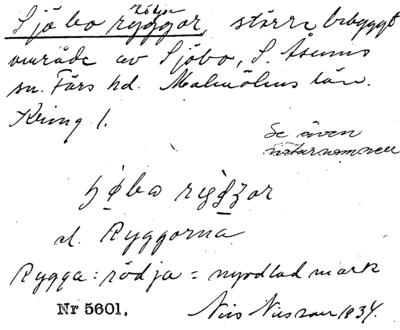 Sjöbo ryggor, större bebyggt
område av Sjöbo, S. Åsums
sn. Färs hd. Malmöhus län.
Kring 1.
Se även
naturnamnen
ryggor
el. Ryggorna
Rygga: rödja = nyodlad mark
Nr 5601. Nils Nilsson 1934.